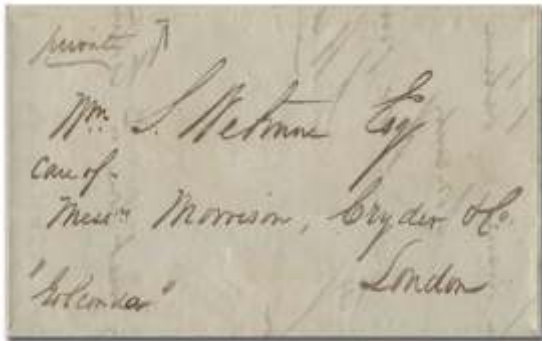 private
Wm. S. Wetmore Esq
Care of
Messrs Morrison, Cryder & Co.
London
"Golconda"